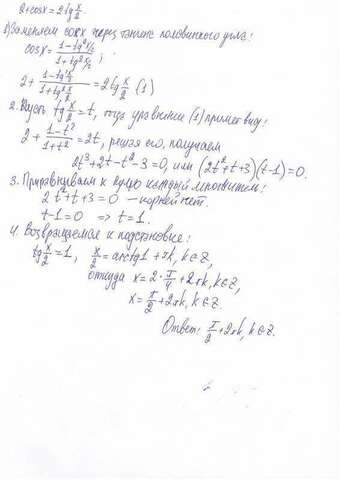 2+cosx=2tg x/2.
1) Заменяем cosx через тангенс половинного угла:
cosx = (1-tg²x/2)/(1+tg²x/2);
2+ (1-tg²x/2)/(1+tg²x/2) = 2tg x/2 (1)
2. Пусть tg x/2 = t, тогда уравнение (1) примет вид:
2+ (1-t²)/(1+t²) = 2t, решая его, получаем
2t³+2t-t²-3=0, или (2t²+t+3)(t-1)=0.
3. Приравниваем к нулю каждый множитель:
2t²+t+3=0 – корней нет.
t-1=0 => t=1.
4. Возвращаемся к подстановке:
tg x/2 = 1, x/2 = arctg1+πk, k∈Z,
откуда x=2·π/4+2πk, k∈Z,
x= π/2+2πk, k∈Z.
Ответ: π/2+2πk, k∈Z.